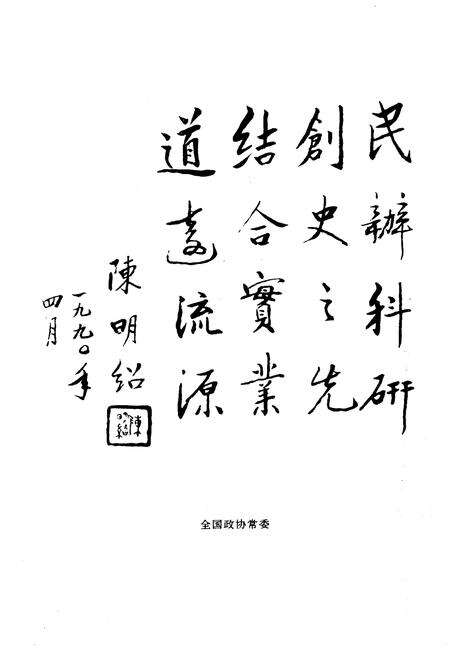 民辦科研
創史之先
結合實業
道遠流源
陳明紹
一九九〇年
四月
陳明紹
全国政协常委